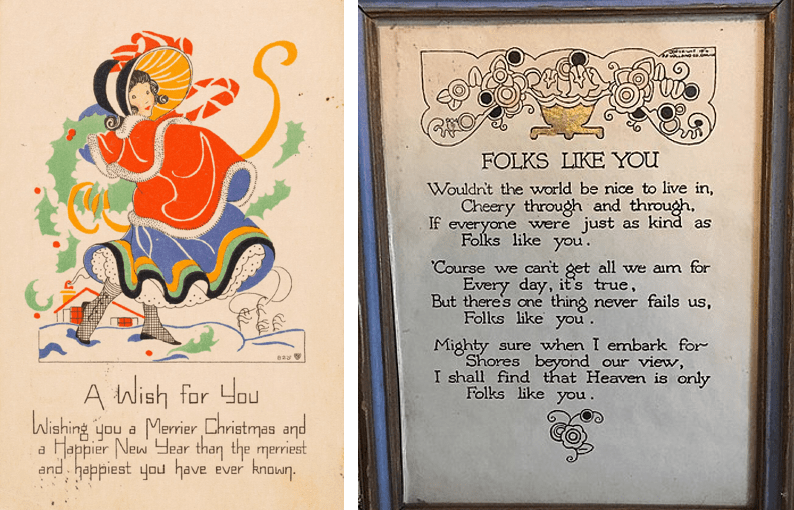 A Wish for You
Wishing you a Merrier Christmas and
a Happier New Year than the merriest
and happiest you have ever known.
FOLKS LIKE YOU
Wouldn't the world be nice to live in,
Cheery through and through,
If everyone were just as kind as
Folks like you.
'Course we can't get all we aim for
Every day, it's true,
But there's one thing never fails us,
Folks like you.
Mighty sure when I embark for~
Shores beyond our view,
I shall find that Heaven is only
Folks like you.